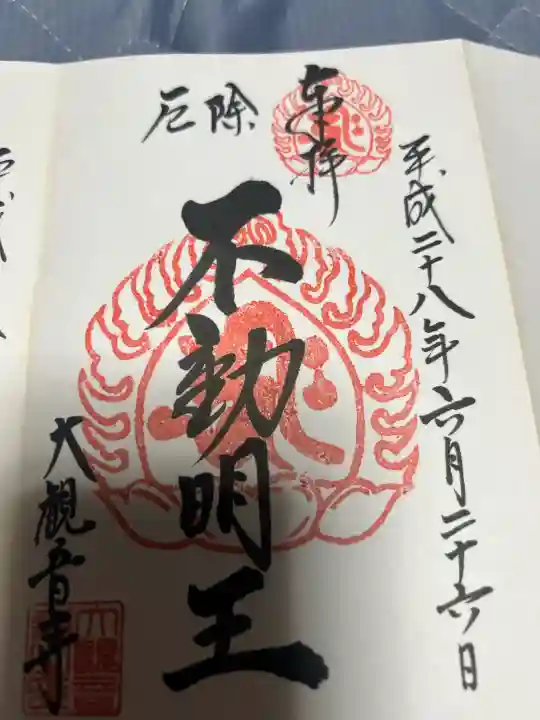 平成二十八年六月二十六日
奉拝
厄除
不動明王
大観音寺